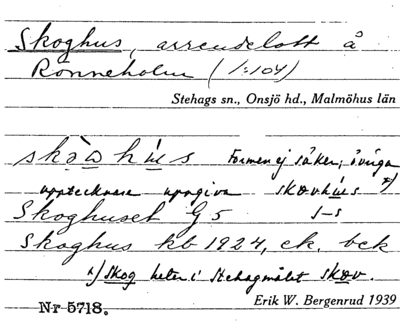 Skoghus, arrendelott å
Rönneholm (1:104)
Stehags sn., Onsjö hd., Malmöhus län
skòwhús Formen ej säker, övriga
upptecknare uppgiva skɷvhús *)
Skoghuset G5 s-s
Skoghus kb 1924, ek. bck
*) Skog heter i Stehagmålet skɷv.
Nr 5718. Erik W. Bergenrud 1939